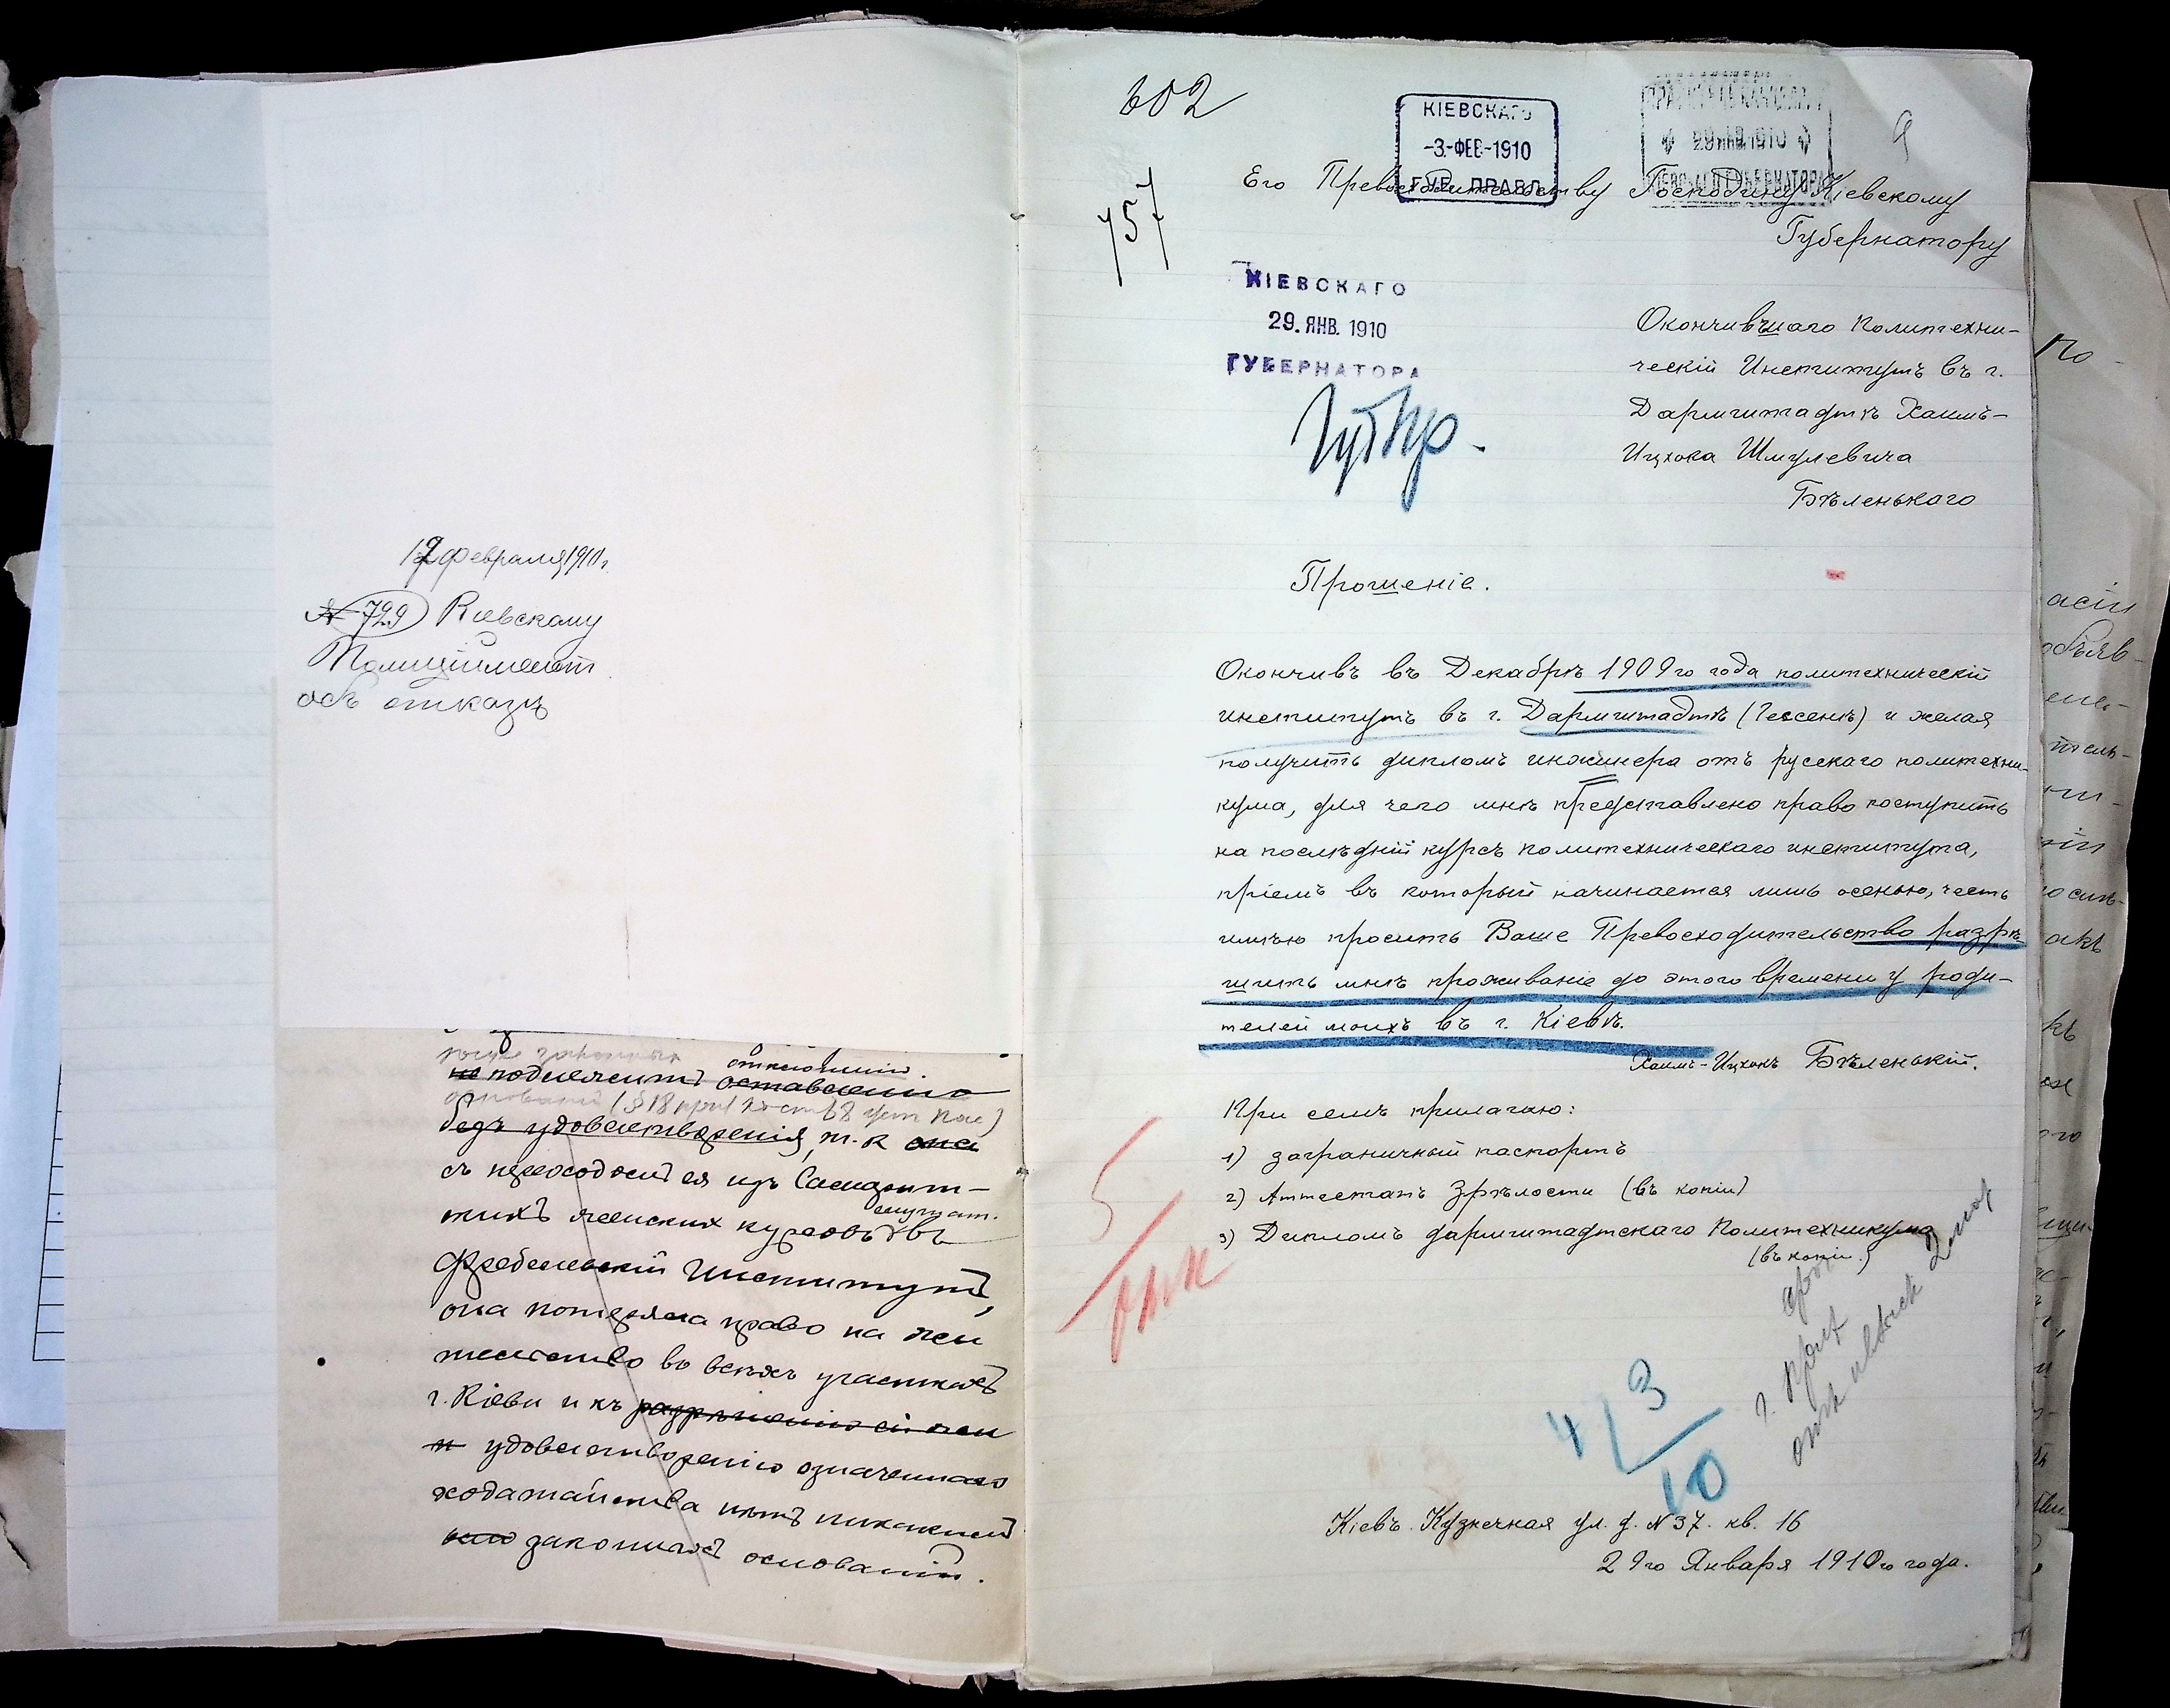 12 февраля 1910 г.
№ 729 Киевскому
Полицiймейст.
объ отказѣ
отклоненiю.
не подлежитъ оставленiю
безъ удовлетворенiя, т. к. она
съ переходомъ ея изъ
скихъ женскихъ курсовъ въ
Фребелевскiй Институтъ,
она потеряла право на жи
тельство во всѣхъ участкахъ
г. Кiева и къ разрѣшенiю ей жи
удовлетворенiю означеннаго
ходатайства нѣтъ никакихъ
законныхъ основанiй.
602
757
КІЕВСКАГО
-3.-ФЕВ-1910
ГУБ. ПРАВЛ.
29 ЯНВ 1910
9
Его Превосходительству Господину Кiевскому
Губернатору
КІЕВСКАГО
29. ЯНВ. 1910
ГУБЕРНАТОРА
Губ Пр.
Окончившаго Политехни-
ческiй Институтъ въ г.
Дармштадтѣ Хаимъ-
Ицхока Шмулевича
Бѣленькаго
Прошенiе.
Окончивъ въ Декабрѣ 1909го года политехническiй
институтъ въ г. Дармштадтѣ (Гессенъ) и желая
получить дипломъ инжинера отъ русскаго политехни-
кума, для чего мнѣ представлено право поступить
на послѣднiй курсъ политехническаго института,
прiемъ въ который начинается лишь осенью, честь
имѣю просить Ваше Превосходительство разрѣ-
шить мнѣ проживанiе до этого времени у роди-
телей моихъ въ г. Кiевѣ.
Хаимъ-Ицхокъ Бѣленькiй.
При семъ прилагаю:
1) заграничный паспортъ
2) Аттестатъ Зрѣлости (въ копiи)
3) Дипломъ дармштадтскаго Политехникума
(въ копiи.)
5
4 3
10
Кiевъ. Кузнечная ул. д. № 37. кв. 16
29го Января 1910го года.